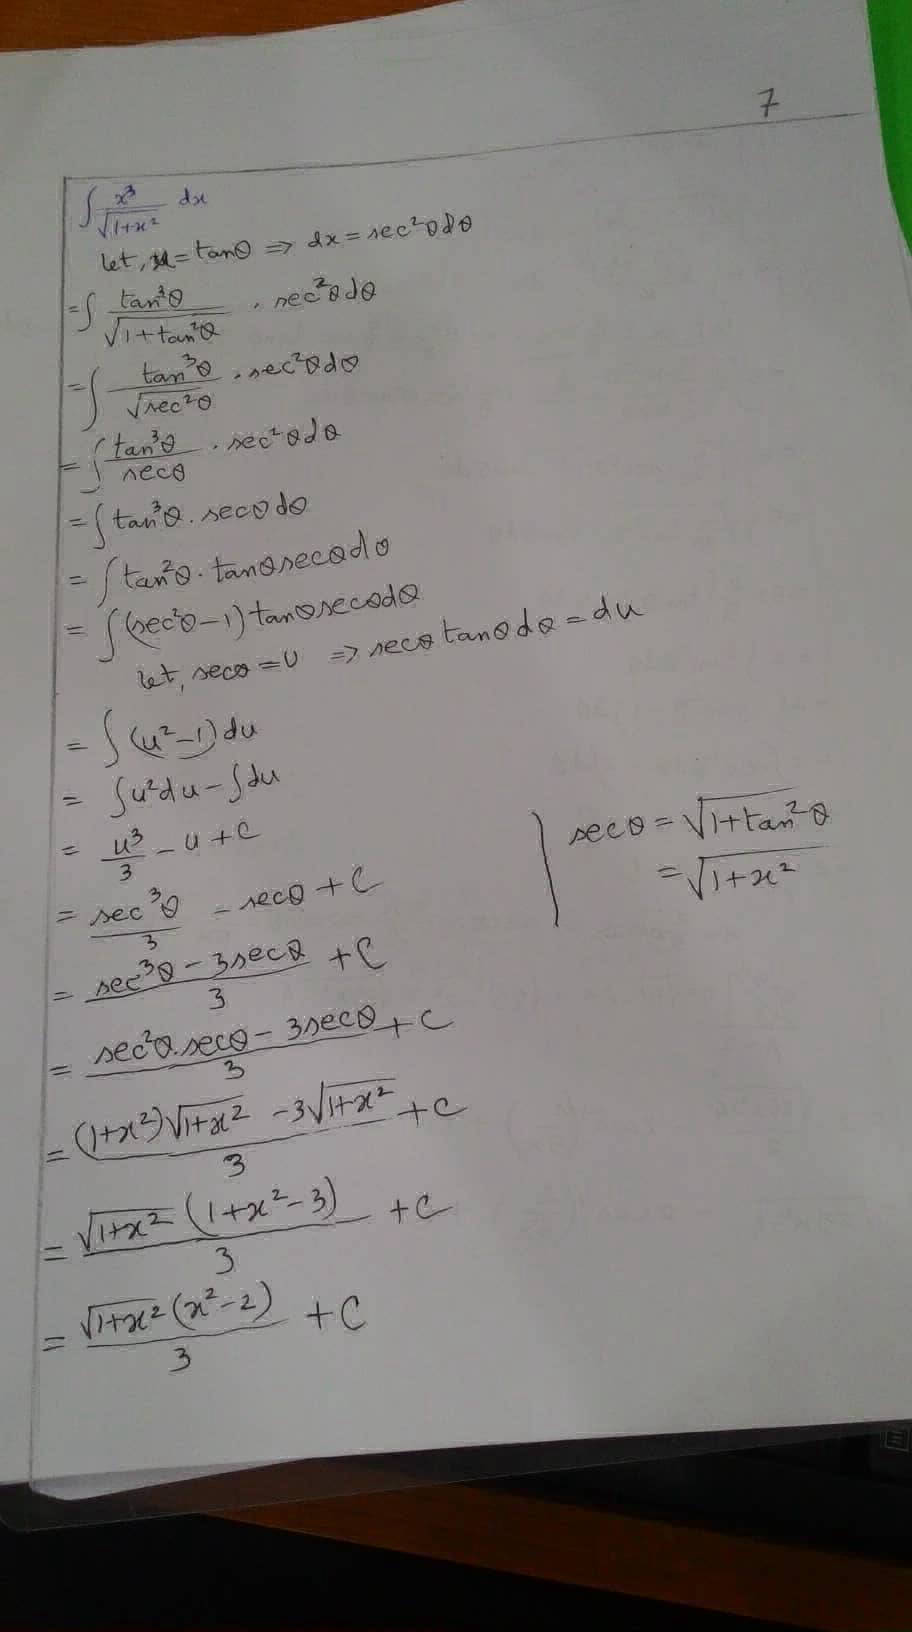 7
∫ x³/√(1+x²) dx
let, x = tanθ ⇒ dx = sec²θdθ
= ∫ tan³θ/√(1+tan²θ) . sec²θdθ
= ∫ tan³θ/√(sec²θ) . sec²θdθ
= ∫ tan³θ/secθ . sec²θdθ
= ∫ tan³θ . secθdθ
= ∫ tan²θ . tanθsecθdθ
= ∫ (sec²θ-1) tanθsecθdθ
let, secθ = u ⇒ secθ tanθdθ = du
= ∫ (u²-1)du
= ∫u²du - ∫du
= u³/3 - u + C
secθ = √(1+tan²θ)
= √(1+x²)
= sec³θ/3 - secθ + C
= (sec³θ - 3secθ)/3 + C
= (sec²θ.secθ - 3secθ)/3 + C
= ((1+x²)√(1+x²) - 3√(1+x²))/3 + C
= √(1+x²) (1+x²-3)/3 + C
= √(1+x²) (x²-2)/3 + C